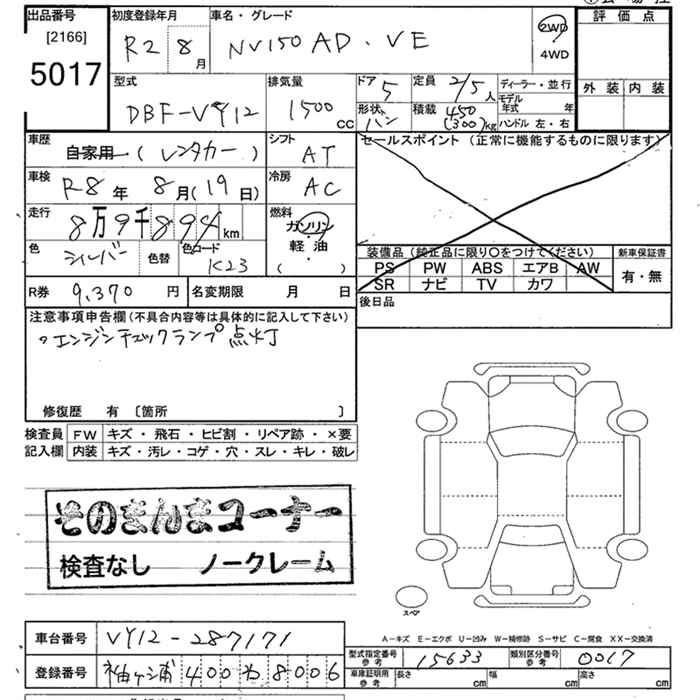 出品番号
[2166]
5017
初度登録年月
R2 8月
車名・グレード
NV150 AD・VE
2WD
4WD
評価点
外装 内装
型式
DBF-VY12
排気量
1500 CC
ドア 5
形状 バン
定員 2/5人
積載 450 (300)kg
ディーラー・並行
モデル年式 年
ハンドル 左・右
車歴
自家用 (レンタカー)
シフト
AT
セールスポイント (正常に機能するものに限ります)
車検
R8年 8月(19日)
冷房
AC
走行
8万9千894km
燃料
ガソリン
・
軽油
( )
色
シルバー
色替
色コード
K23
装備品 (純正品に限り〇をつけてください)
PS PW ABS エアB AW
SR ナビ TV カワ
新車保証書
有・無
R券 9,370円
名変期限 月 日
後日品
注意事項申告欄 (不具合内容等は具体的に記入して下さい)
・エンジンチェックランプ点灯
修復歴 有 〔箇所 〕
検査員記入欄
FW キズ・飛石・ヒビ割・リペア跡・×要
内装 キズ・汚レ・コゲ・穴・スレ・キレ・破レ
そのまんまコーナー
検査なし ノークレーム
スペア
A−キズ E−エクボ U−凹み W−補修跡 S−サビ C−腐食 XX−交換済
車台番号 VY12-287171
型式指定番号 参考 15633
類別区分番号 参考 0017
登録番号 袖ヶ浦 400 わ 8006
車庫証明用 参考 長さ cm 幅 cm 高さ cm